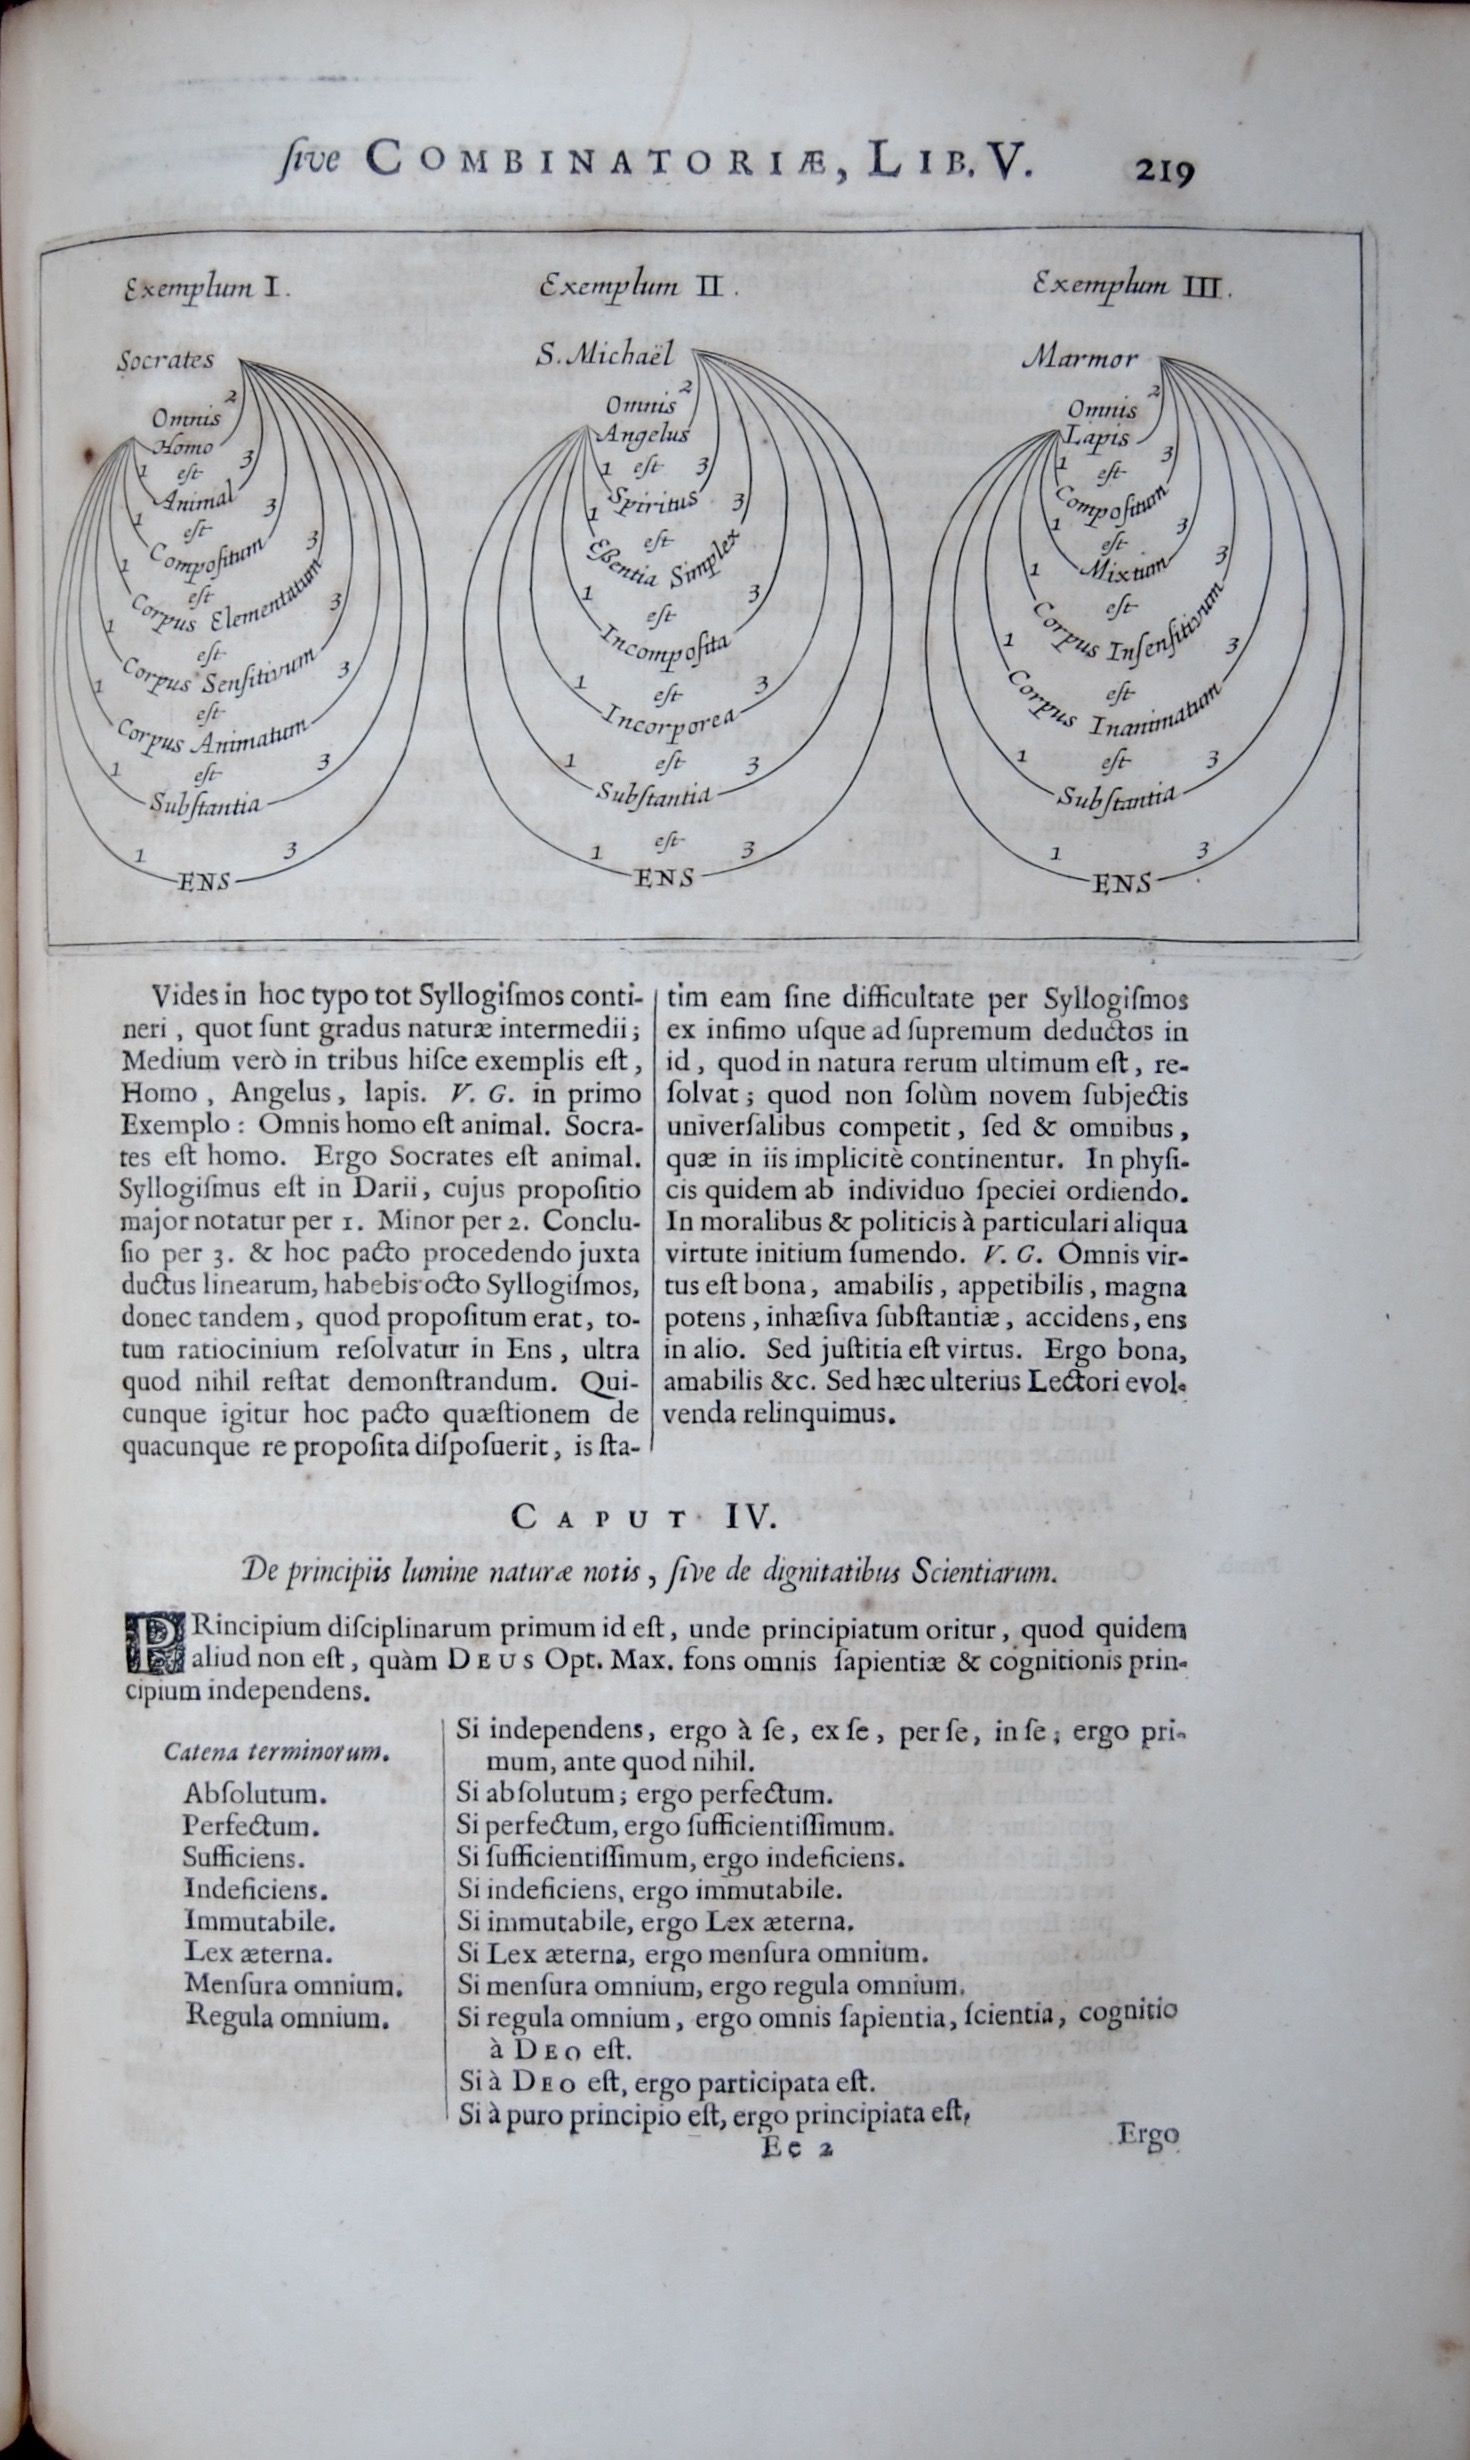 ſive COMBINATORIÆ, LIB. V. 219
Exemplum I.
Socrates
2
Omnis
Homo
1 est 3
Animal
1 est 3
Compoſitum
1 est 3
Corpus Elementatum
1 est 3
Corpus Senſitivum
1 est 3
Corpus Animatum
1 est 3
Subſtantia
1 3
ENS
Exemplum II.
S. Michaël
2
Omnis
Angelus
1 est 3
Spiritus
1 est 3
Eſsentia Simplex
1 est 3
Incompoſita
1 est 3
Incorporea
1 est 3
Subſtantia
1 est 3
ENS
Exemplum III.
Marmor
2
Omnis
Lapis
1 est 3
Compoſitum
1 est 3
Mixtum
1 est 3
Corpus Inſenſitivum
1 est 3
Corpus Inanimatum
1 est 3
Subſtantia
1 3
ENS
Vides in hoc typo tot Syllogiſmos conti-
neri, quot ſunt gradus naturæ intermedii;
Medium verò in tribus hiſce exemplis eſt,
Homo, Angelus, lapis. V. G. in primo
Exemplo: Omnis homo eſt animal. Socra-
tes eſt homo. Ergo Socrates eſt animal.
Syllogiſmus eſt in Darii, cujus propoſitio
major notatur per 1. Minor per 2. Conclu-
ſio per 3. & hoc pacto procedendo juxta
ductus linearum, habebis octo Syllogiſmos,
donec tandem, quod propoſitum erat, to-
tum ratiocinium reſolvatur in Ens, ultra
quod nihil reſtat demonſtrandum. Qui-
cunque igitur hoc pacto quæſtionem de
quacunque re propoſita diſpoſuerit, is ſta-
tim eam ſine difficultate per Syllogiſmos
ex infimo uſque ad ſupremum deductos in
id, quod in natura rerum ultimum eſt, re-
ſolvat; quod non ſolùm novem ſubjectis
univerſalibus competit, ſed & omnibus,
quæ in iis implicitè continentur. In phyſi-
cis quidem ab individuo ſpeciei ordiendo.
In moralibus & politicis à particulari aliqua
virtute initium ſumendo. V. G. Omnis vir-
tus eſt bona, amabilis, appetibilis, magna
potens, inhæſiva ſubſtantiæ, accidens, ens
in alio. Sed juſtitia eſt virtus. Ergo bona,
amabilis &c. Sed hæc ulterius Lectori evol-
venda relinquimus.
CAPUT IV.
De principiis lumine naturæ notis, ſive de dignitatibus Scientiarum.
PRincipium diſciplinarum primum id eſt, unde principiatum oritur, quod quidem
aliud non eſt, quàm DEUS Opt. Max. fons omnis ſapientiæ & cognitionis prin-
cipium independens.
Catena terminorum.
Abſolutum.
Perfectum.
Sufficiens.
Indeficiens.
Immutabile.
Lex æterna.
Menſura omnium.
Regula omnium.
Si independens, ergo à ſe, ex ſe, per ſe, in ſe; ergo pri-
mum, ante quod nihil.
Si abſolutum; ergo perfectum.
Si perfectum, ergo ſufficientiſſimum.
Si ſufficientiſſimum, ergo indeficiens.
Si indeficiens, ergo immutabile.
Si immutabile, ergo Lex æterna.
Si Lex æterna, ergo menſura omnium.
Si menſura omnium, ergo regula omnium.
Si regula omnium, ergo omnis ſapientia, ſcientia, cognitio
à DEO eſt.
Si à DEO eſt, ergo participata eſt.
Si à puro principio eſt, ergo principiata eſt,
Ee 2 Ergo